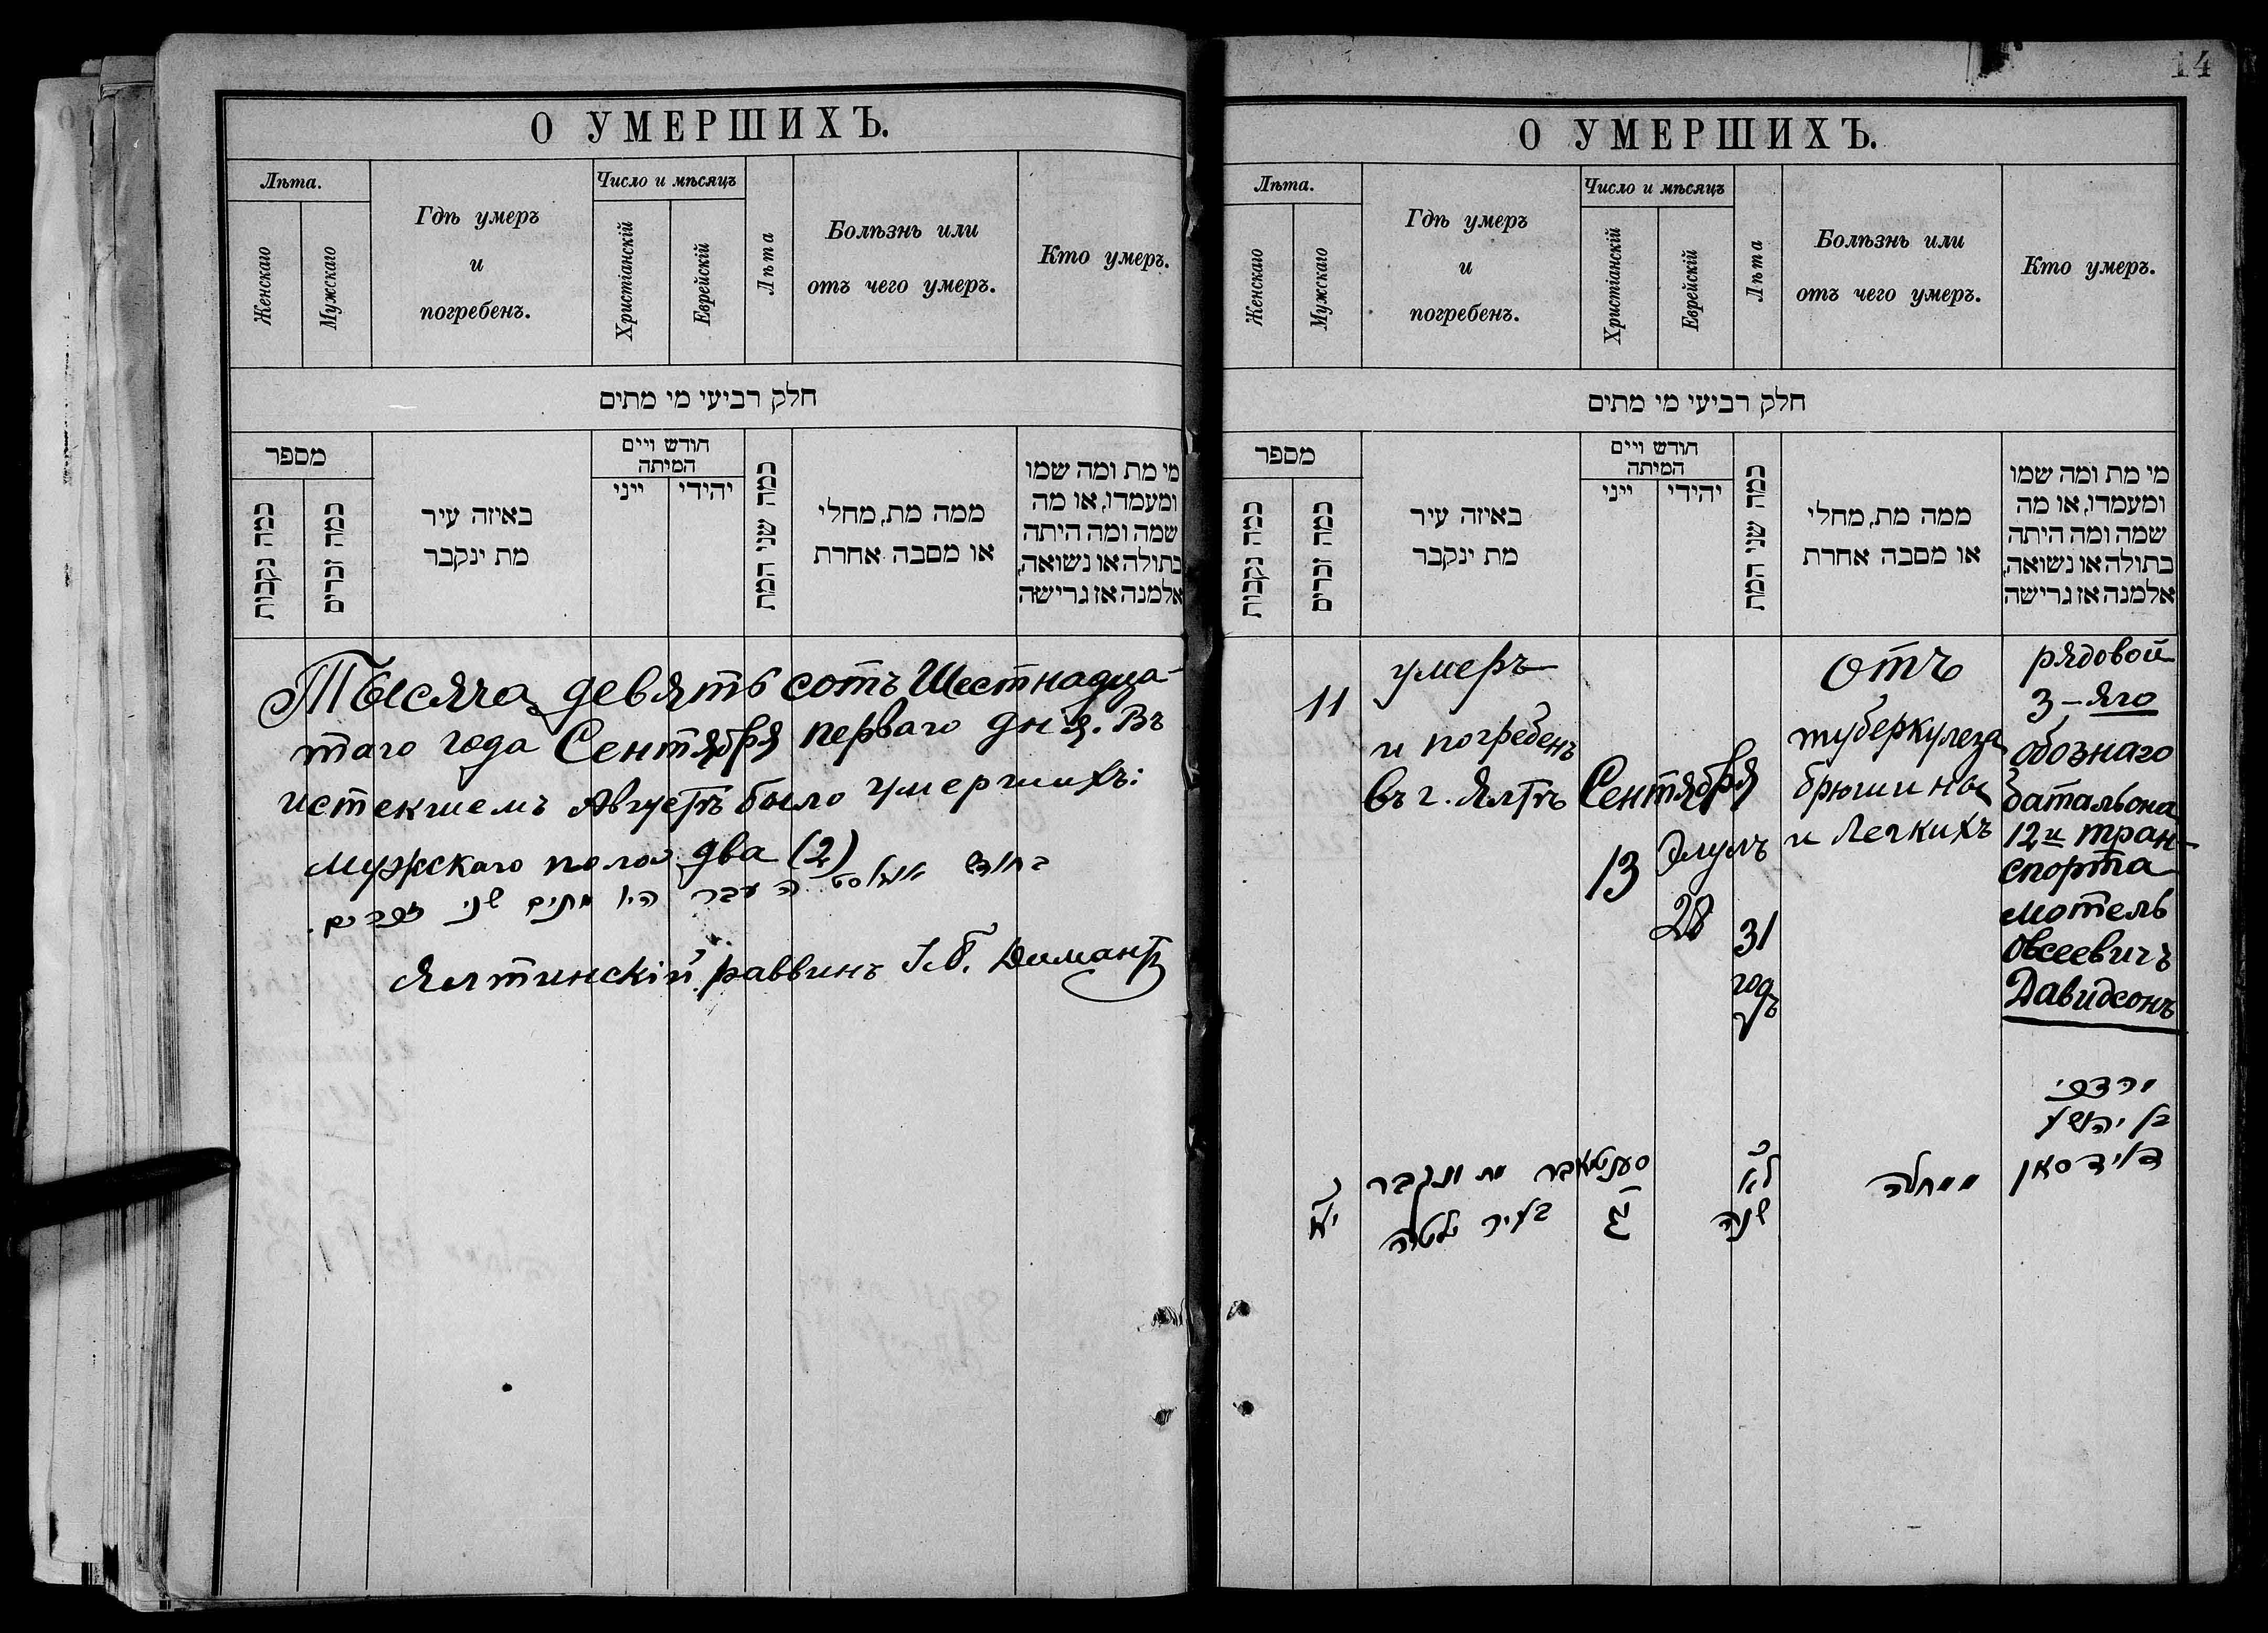 О УМЕРШИХЪ.
Лѣта.
Женскаго
Мужскаго
Гдѣ умеръ
и
погребенъ.
Число и мѣсяцъ
Христіанскій
Еврейскій
Лѣта
Болѣзнь или
отъ чего умеръ.
Кто умеръ.
חלק רביעי מי מתים
מספר
כמה נקבות
כמה זכרים
באיזה עיר
מת ינקבר
חודש ויים
המיתה
ייני
יהידי
כמה שני המת
ממה מת, מחלי
או מסבה אחרת
מי מת ומה שמו
ומעמדו, או מה
שמה ומה היתה
בתולה או נשואה,
אלמנה אז גרישה
Тысяча девятьсотъ Шестнадца-
таго года Сентября перваго дня. Въ
истекшемъ Августѣ было умершихъ:
мужскаго пола два (2)
בחודש אוגוסט העבר היו מתים שני זכרים.
Ялтинскій раввинъ І.Б. Димантъ
14
О УМЕРШИХЪ.
Лѣта.
Женскаго
Мужскаго
Гдѣ умеръ
и
погребенъ.
Число и мѣсяцъ
Христіанскій
Еврейскій
Лѣта
Болѣзнь или
отъ чего умеръ.
Кто умеръ.
חלק רביעי מי מתים
מספר
כמה נקבות
כמה זכרים
באיזה עיר
מת ינקבר
חודש ויים
המיתה
ייני
יהידי
כמה שני המת
ממה מת, מחלי
או מסבה אחרת
מי מת ומה שמו
ומעמדו, או מה
שמה ומה היתה
בתולה או נשואה,
אלמנה אז גרישה
11
умеръ
и погребенъ
въ г. Ялтѣ
Сентября
13
Элулъ
28
31
годъ
отъ
туберкулеза
брюшины
и легкихъ
рядовой
3-яго
обознаго
батальона
12й тран-
спорта
Мотель
Овсеевичъ
Давидсонъ
מרדכי
בן יהושע
דוידסאן
ממחלה
לא
שנה
סענטאבר
יג
מת ונקבר
בעיר ילטה
יא